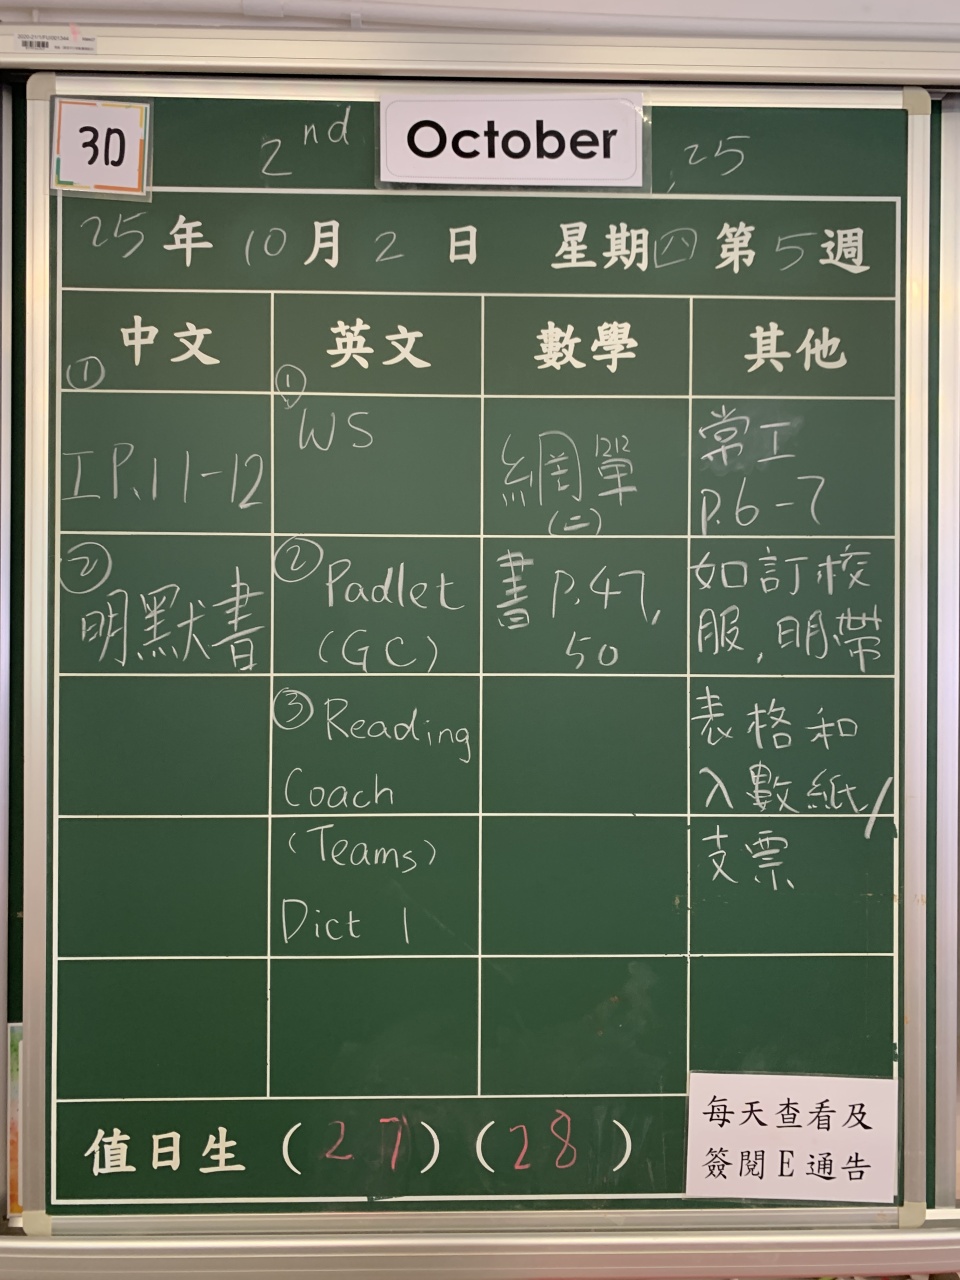 3D
2nd October, 25
25年10月2日 星期四 第5週
中文 英文 數學 其他
①
工P.11-12
②
明默書
①
WS
② Padlet
(GC)
③ Reading
Coach
(Teams)
Dict 1
網單
(二)
書 P.47,
50
常工
P.6-7
如訂校
服,明帶
表格和
入數紙/
支票
值日生 (27) (28)
每天查看及
簽閱E通告